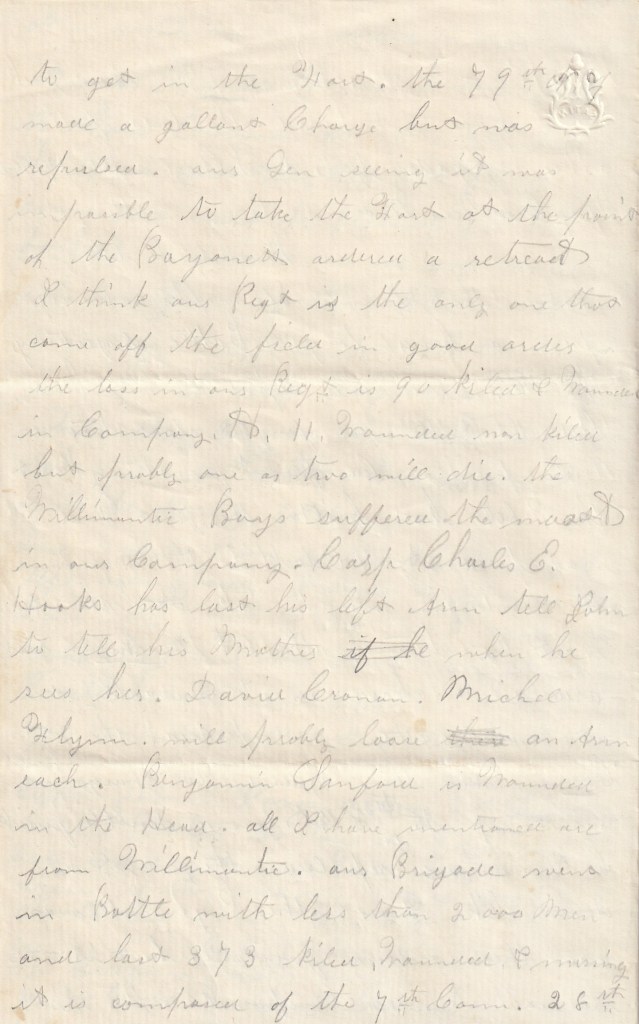 to get in the Fort. the 79th N.Y.
made a gallant Charge but was
repulsed. our Gen seeing it was
impossible to take the Fort at the point
of the Bayonett ordered a retreat
I think our Regt is the only one that
come off the field in good order
the loss in our Regt is 90 kiled & Wounded
in Company. H. 11. Wounded non kiled
but probly one or two will die. the
Willimantic Boys suffered the moast
in our Company. Corp Charles E.
Hooks has lost his left Arm tell John
to tell his Mother if he when he
sees her. David Cronan. Michel
Flynn. will probly loose their an Arm
each. Benjamin Sanford is Wounded
in the Head. all I have mentioned are
from Willimantic. our Brigade went
in Battle with less than 2000 Men
and lost 373 kiled, Wounded & missing
it is composed of the 7th Conn. 28th